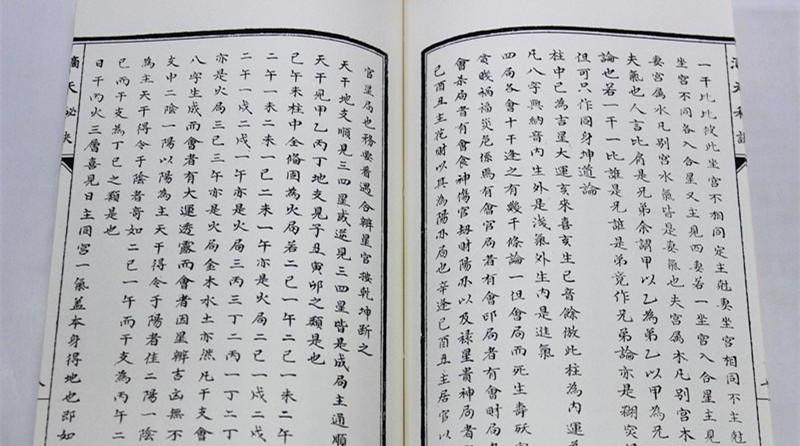 一干比比從此坐宮不相同定主尅妻坐宮相同不主尅
坐宮不同各入合星又主見西妻若一坐宮入合星主見
妻宮属水凡别宮水氣皆是妻氣也夫宮属木凡别宮木
夫氣也人言比肩是兄弟余謂甲以乙為弟乙以甲為兄
論也若一干一比誰是兄誰是弟竟作兄弟論亦是突
但可只作同身坤道論
柱中巳為吉星大運亥來喜亥生巳音餘倣此柱為內運
凡八字無納音內生外是浅氣外生內是進氣
四局各會十干逢之有幾千條論一但會局而死生壽殀
貧賎禍福災厄係焉有會官局者有會印局者有會財局
會杀局者有會食神傷官刼財陽亦以及禄星貴神局者
巳酉丑主花財以其為陽亦局也辛逢巳酉丑主居官以
官星局也務要看遇合辨星官按乾坤断之
天干地支順見三四星或逆見三四星皆是成局主通順
天干見甲乙丙丁地支見子丑寅卯之類是也
巳午未柱中全備固為火局若二巳一午二巳一未二午
二午一未二未一巳二未一午亦是火局二巳一戌二戌
二午一戌二戌一午亦是火局三丙三丁二丙一丁二丁
亦是火局三巳三午亦是火局金木水土亦然凡干支會
八字生成而會者有大運透露而會者因星辨吉凶無不
支中二陰一陽以陽為主天干得令于陽者佳二陽一陰
為主天干得令于陰者奇如二巳一午而干支為丙午二
巳而干支為丁巳之類是也
日干丙火三層喜見日主同宮一氣盖本身得地也即如
滴天秘訣